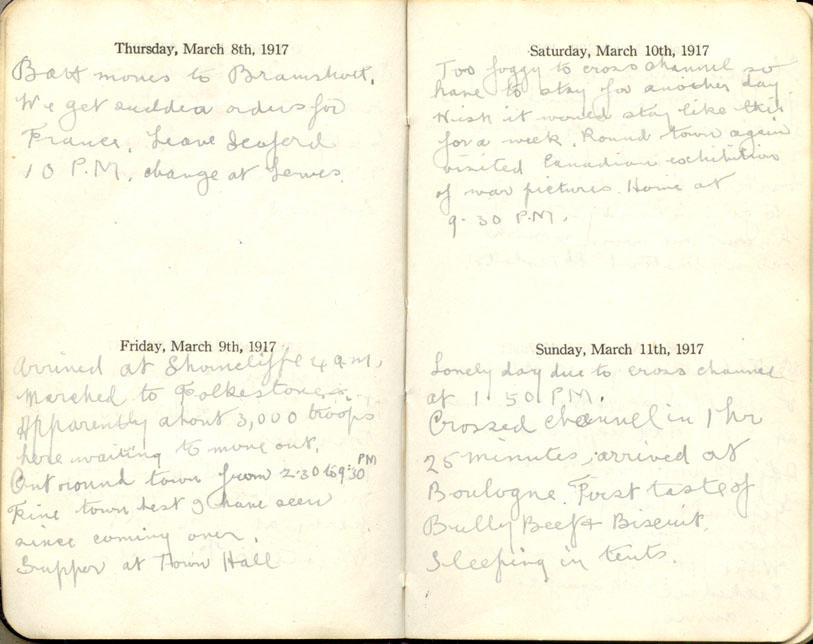 Thursday, March 8th, 1917
Batt moves to Bramshott.
We get sudden orders for
France. Leave Seaford
10 P.M. change at Lewes.
Friday, March 9th, 1917
Arrived at Shorncliffe 4 a.m.
Marched to Folkestone.
Apparently about 3,000 troops
here waiting to move out.
Out round town from 2.30 to 9.30 PM
Fine town best I have seen
since coming over.
Supper at Town Hall
Saturday, March 10th, 1917
Too foggy to cross channel so
have to stay for another day.
Wish it would stay like this
for a week. Round town again
visited Canadian exhibition
of war pictures. Home at
9.30 P.M.
Sunday, March 11th, 1917
Lonely day due to cross channel
at 1.50 P.M.
Crossed channel in 1 hr
25 minutes, arrived at
Boulogne. First taste of
Bully Beef & Biscuit.
Sleeping in tents.